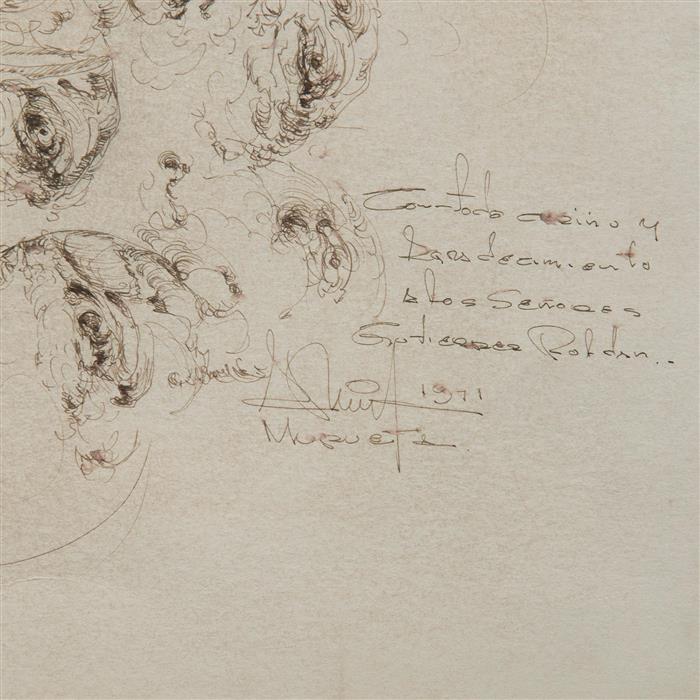 Con todo cariño y
Agradecimiento
a los Señores
Gutierrez Roldan..
1971